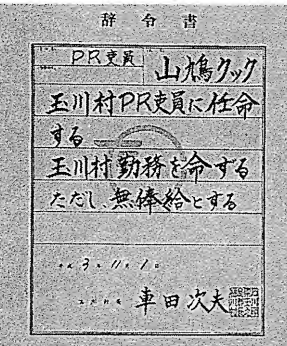 辞令書
PR吏員
山鳩クック
玉川村PR吏員に任命
する
玉川村勤務を命ずる
ただし、無俸給とする
3年11月1日
車田次夫